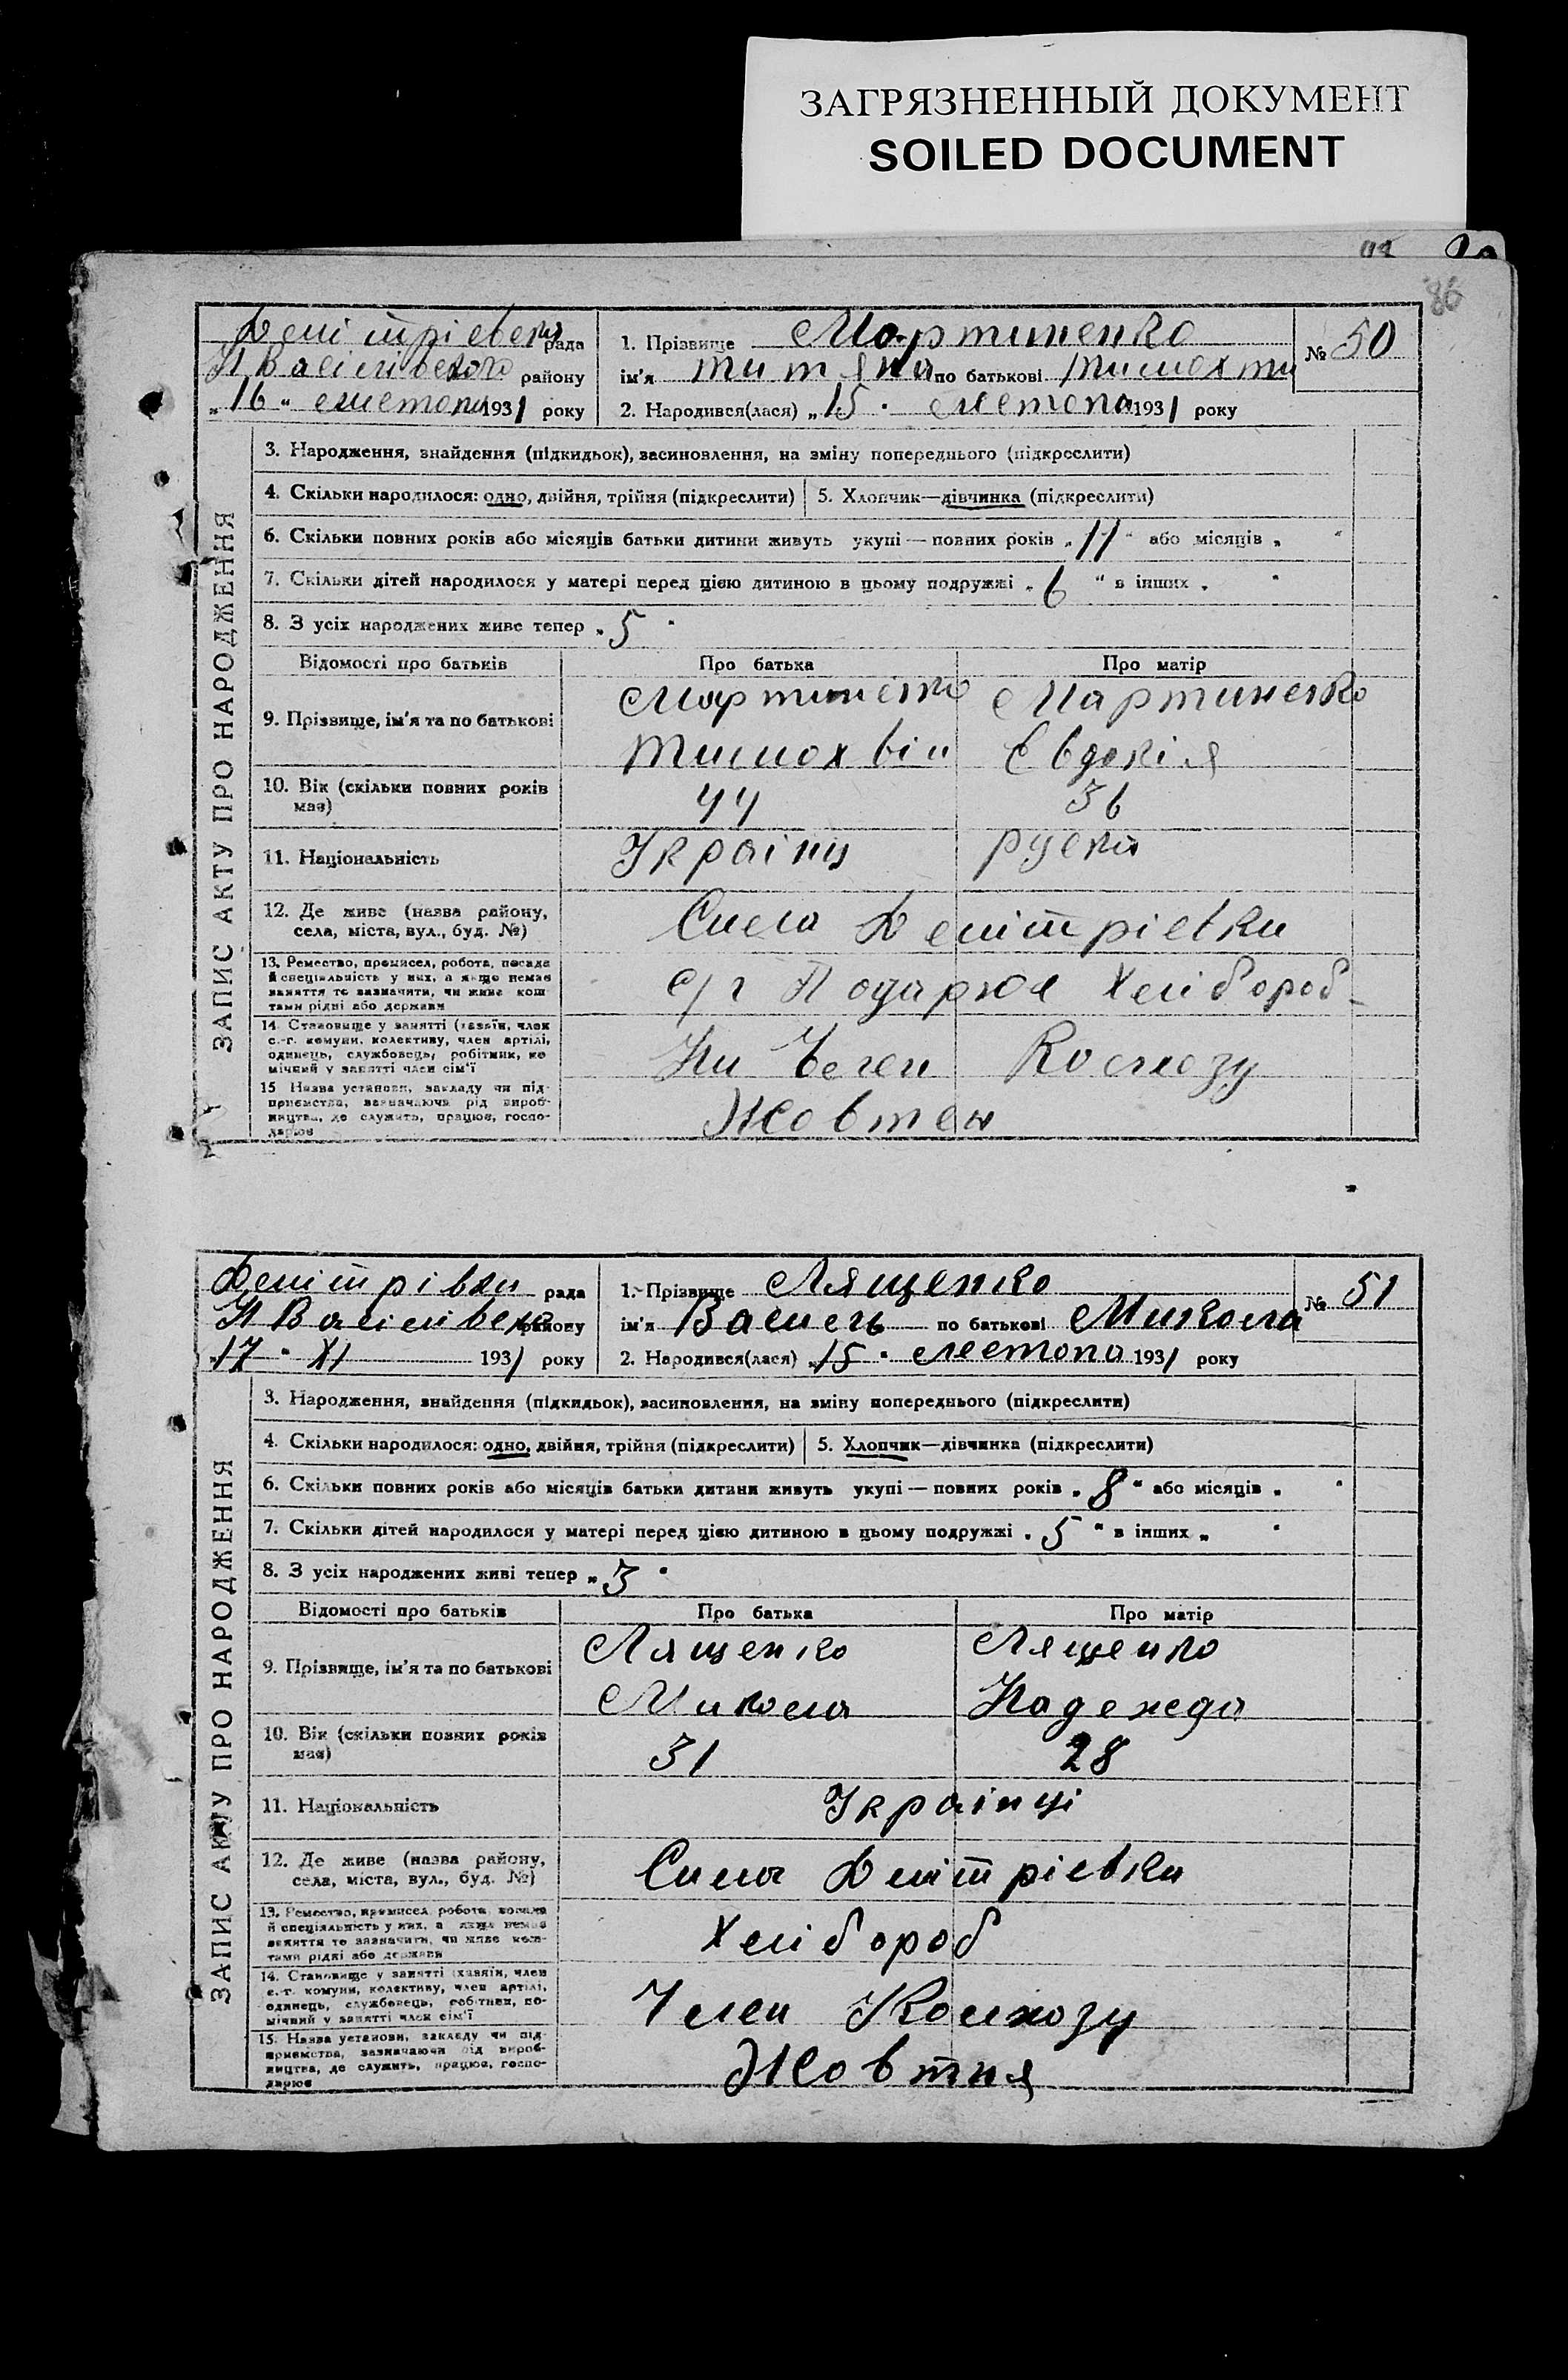 ЗАГРЯЗНЕННЫЙ ДОКУМЕНТ
SOILED DOCUMENT
86
ЗАПИС АКТУ ПРО НАРОДЖЕННЯ
рада
району
„16“ 1931 року
1. Прізвище Мартиненко
№ 50
ім'я Титяна по батькові
2. Народився(лася) „15“ 1931 року
3. Народження, знайдення (підкидьок), засиновлення, на зміну попереднього (підкреслити)
4. Скільки народилося: одно, двійня, трійня (підкреслити) 5. Хлопчик—дівчинка (підкреслити)
6. Скільки повних років або місяців батьки дитини живуть укупі — повних років „11“ або місяців „ “
7. Скільки дітей народилося у матері перед цією дитиною в цьому подружжі „6“ в інших „ “
8. З усіх народжених живе тепер „5“
Відомості про батьків Про батька Про матір
9. Прізвище, ім'я та по батькові Мартиненко Мартиненко
Тимохвій Євдокія
10. Вік (скільки повних років має) 44 36
11. Національність Українц руска
12. Де живе (назва району, села, міста, вул., буд. №)
13. Ремество, промисел, робота, посада й спеціяльність у них, а якщо немає заняття то зазначити, чи живе коштами рідні або держави с/г Хлібороб
14. Становище у занятті (хазяїн, член с.-г. комуни, колективу, член артілі, одинець, службовець, робітник, помічний у занятті член сім'ї Колхозу
15. Назва установи, закладу чи підприємства, зазначаючи рід виробництва, де служить, працює, господарює Жовтен
ЗАПИС АКТУ ПРО НАРОДЖЕННЯ
рада
району
„17“ XI 1931 року
1. Прізвище Лященко
№ 51
ім'я Василь по батькові Микола
2. Народився(лася) „15“ 1931 року
3. Народження, знайдення (підкидьок), засиновлення, на зміну попереднього (підкреслити)
4. Скільки народилося: одно, двійня, трійня (підкреслити) 5. Хлопчик—дівчинка (підкреслити)
6. Скільки повних років або місяців батьки дитини живуть укупі — повних років „8“ або місяців „ “
7. Скільки дітей народилося у матері перед цією дитиною в цьому подружжі „5“ в інших „ “
8. З усіх народжених живі тепер „3“
Відомості про батьків Про батька Про матір
9. Прізвище, ім'я та по батькові Лященко Лященко
Микола Надежда
10. Вік (скільки повних років має) 31 28
11. Національність Українці
12. Де живе (назва району, села, міста, вул., буд. №)
13. Ремество, промисел, робота, посада й спеціяльність у них, а якщо немає заняття то зазначити, чи живе коштами рідні або держави Хлібороб
14. Становище у занятті (хазяїн, член с.-г. комуни, колективу, член артілі, одинець, службовець, робітник, помічний у занятті член сім'ї Член Колхозу
15. Назва установи, закладу чи підприємства, зазначаючи рід виробництва, де служить, працює, господарює Жовтня